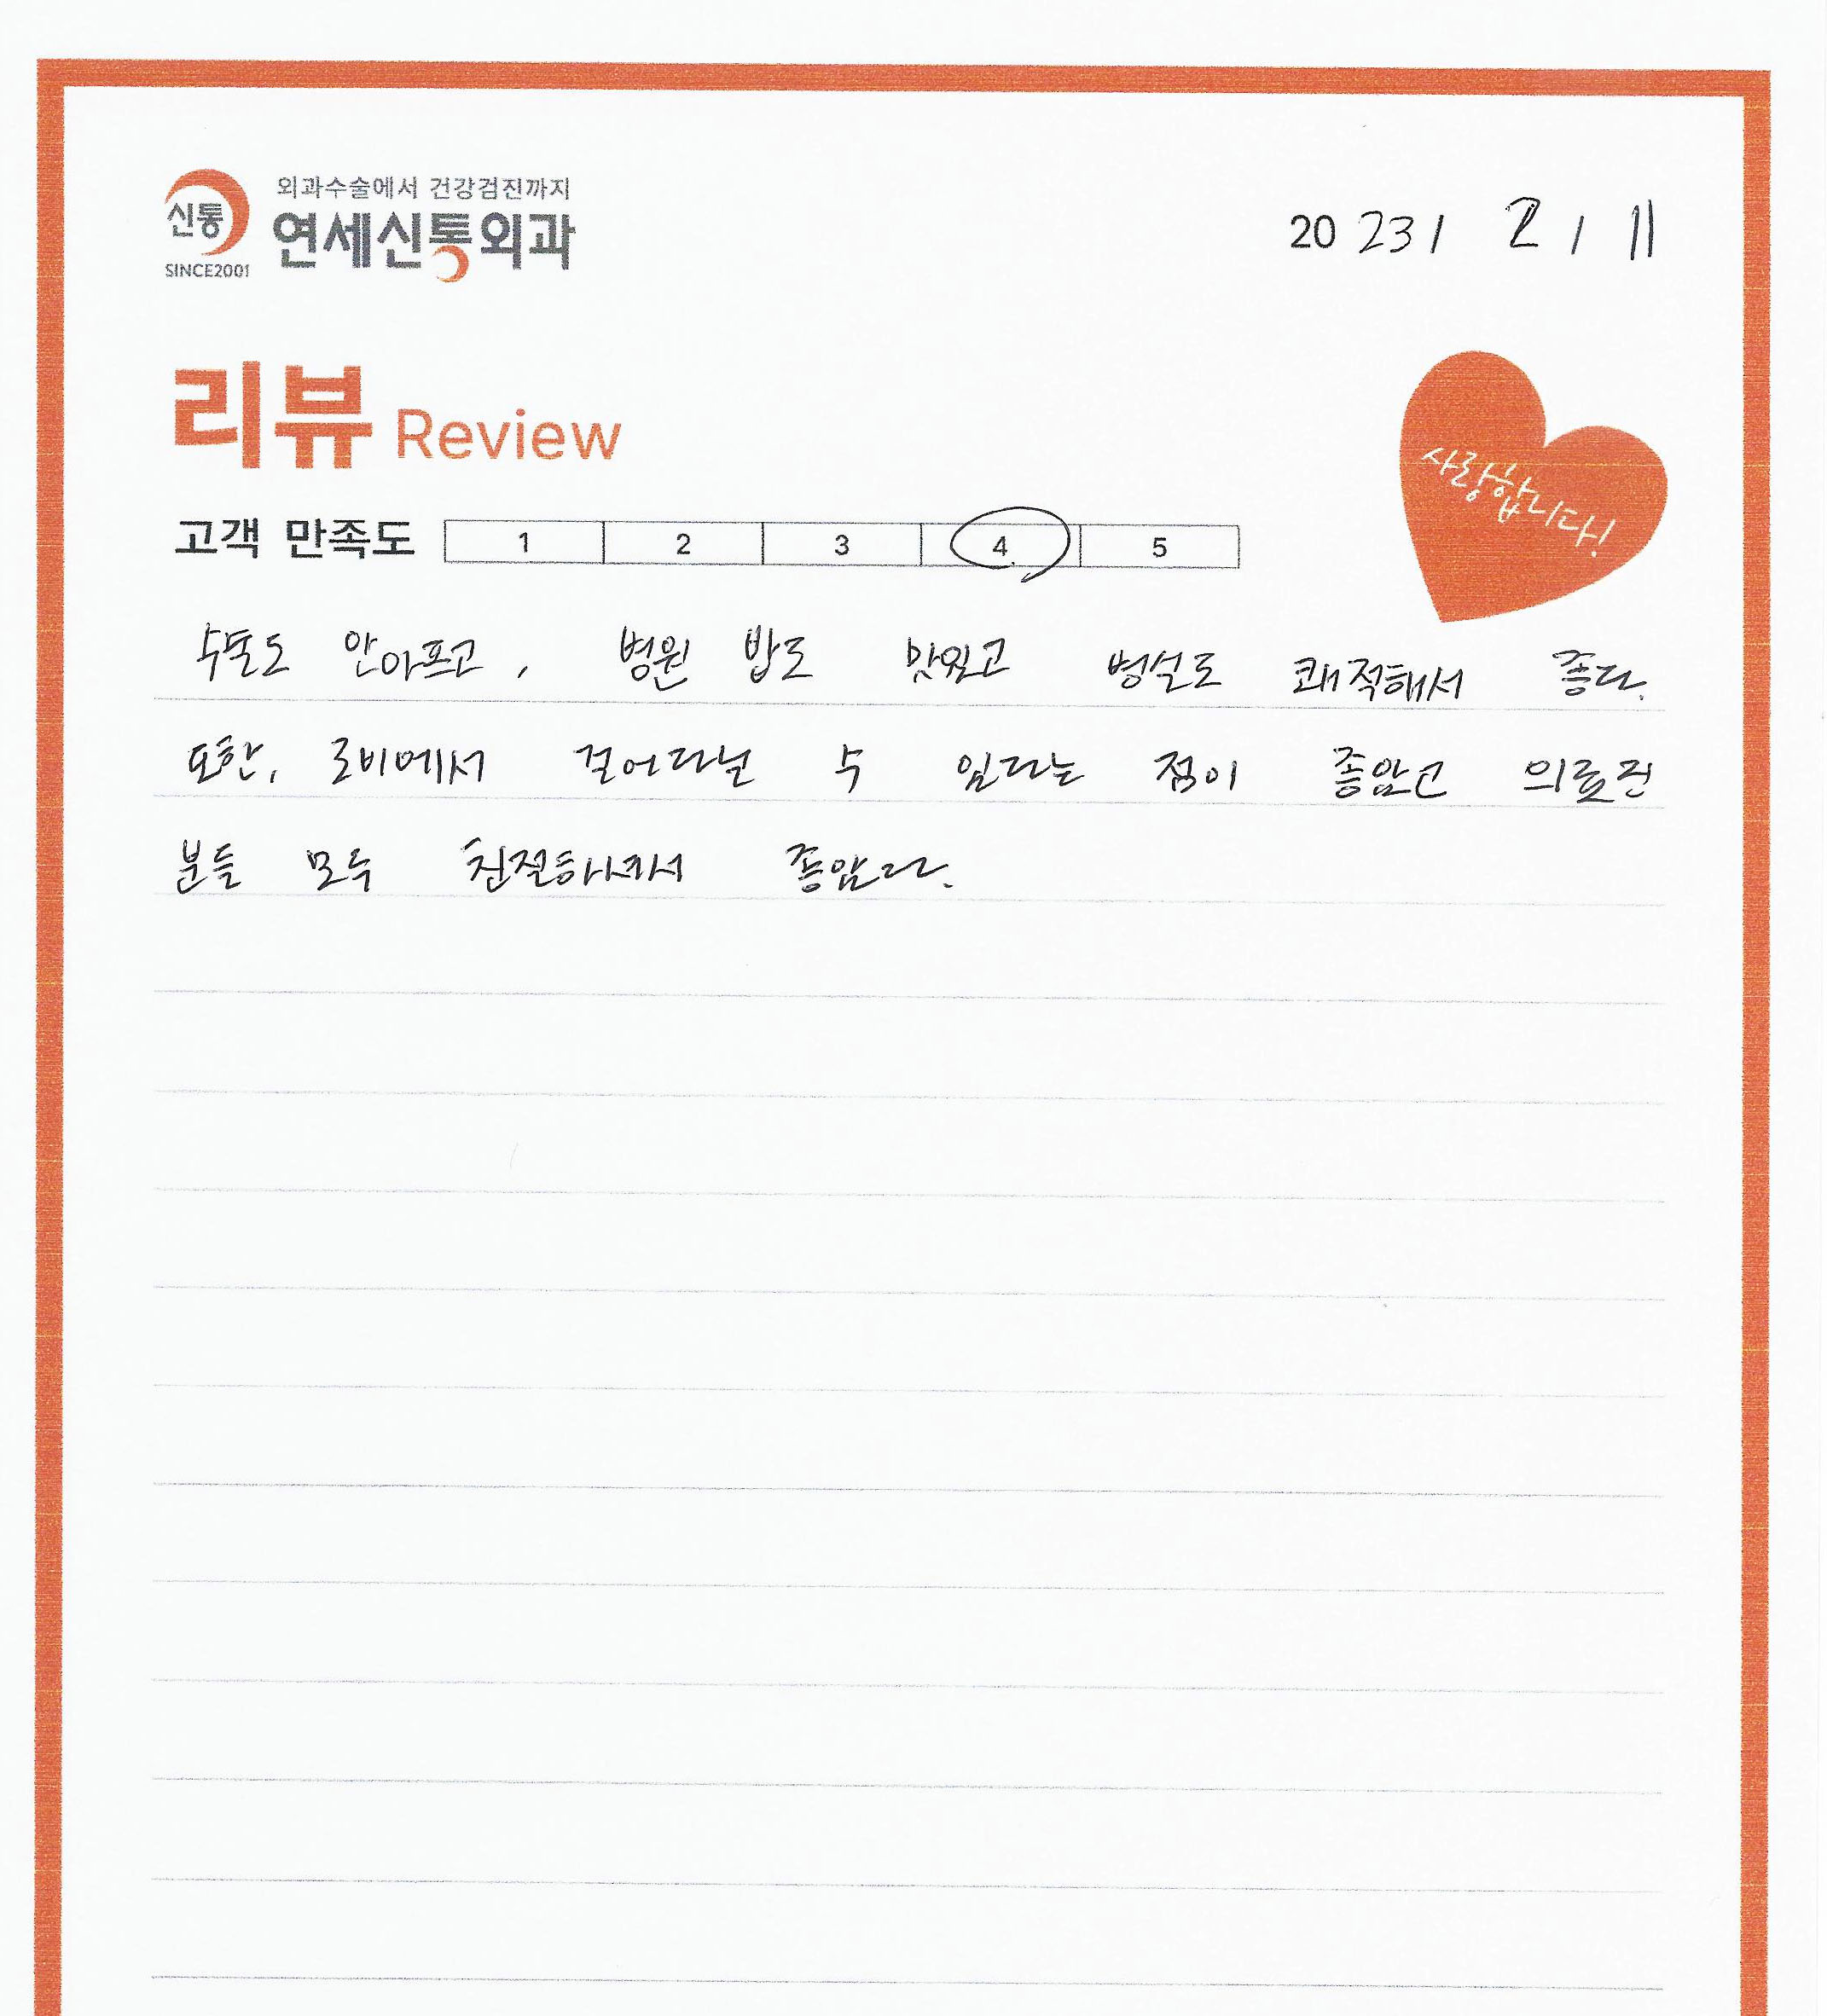 신통
SINCE2001
외과수술에서 건강검진까지
연세신통외과
2023 / 2 / 11
리뷰 Review
사랑합니다!
고객 만족도 1 2 3 4 5
수술도 안아프고, 병원 밥도 맛있고 병실도 쾌적해서 좋다.
또한, 로비에서 걸어다닐 수 있다는 점이 좋았고 의료진
분들 모두 친절하셔서 좋았다.